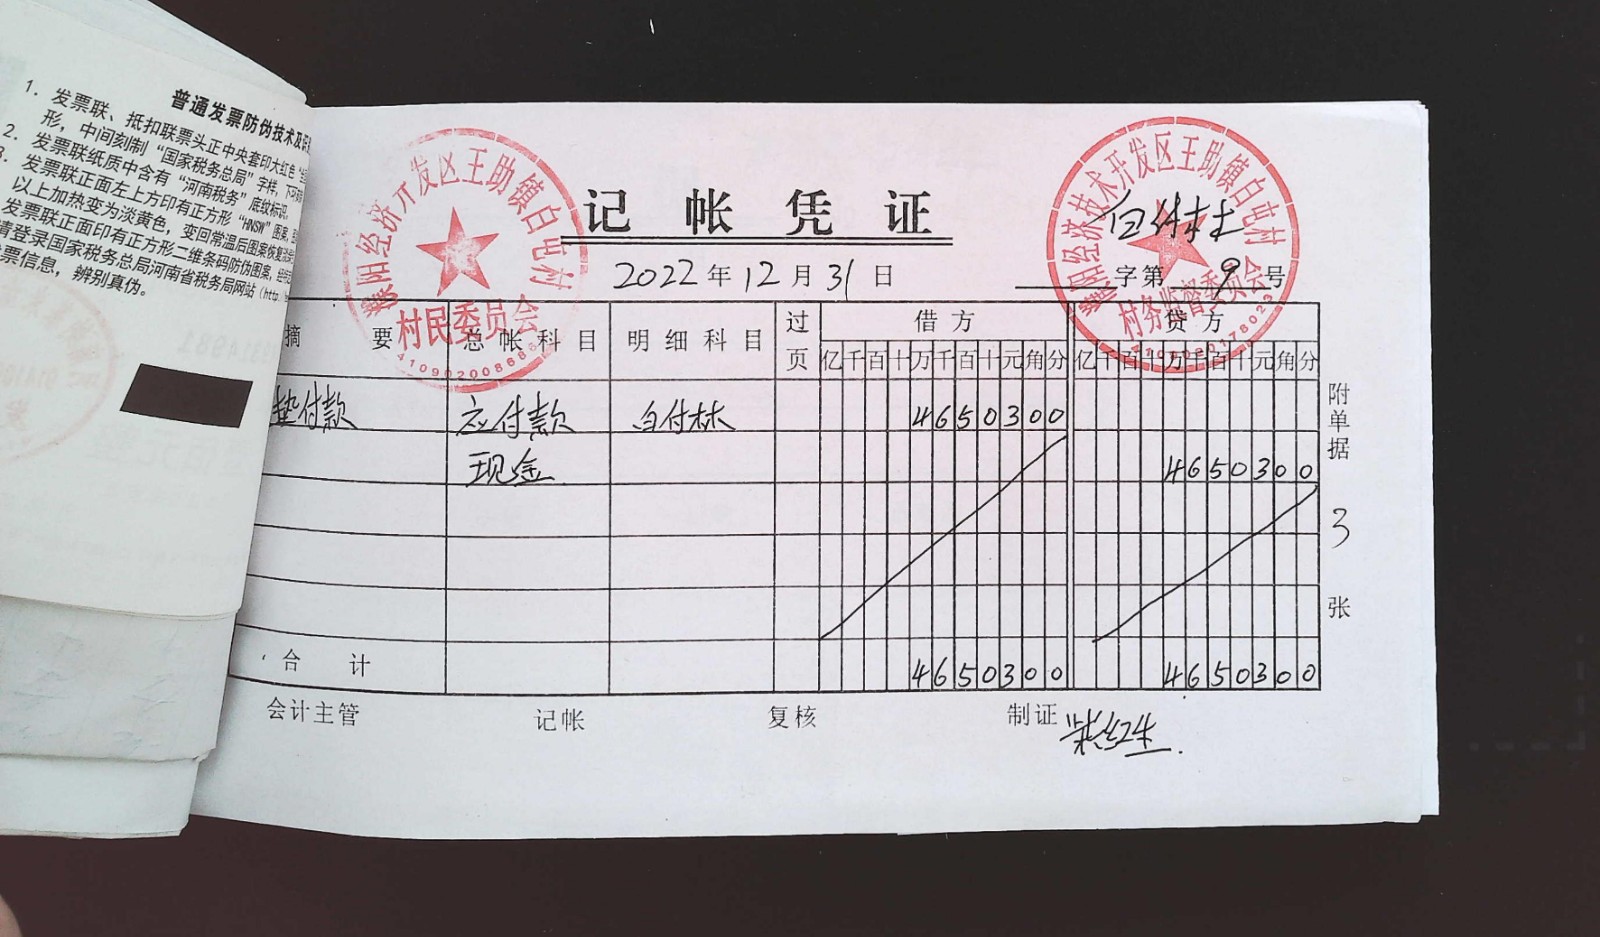 普通发票防伪技术及
1. 发票联、抵扣联票头正中央套印大红色
形，中间刻制“国家税务总局”字样，下环
2. 发票联纸质中含有“河南税务”底纹标识。
3. 发票联正面左上方印有正方形“HNSW”图案，
以上加热变为淡黄色，变回常温后图案恢复
发票联正面印有正方形二维条码防伪图案，
请登录国家税务总局河南省税务局网站（http:
票信息，辨别真伪。
记帐凭证
2022年12月31日
字第 9 号
濮阳经济开发区王助镇白屯村
村民委员会
濮阳经济技术开发区王助镇白屯村
村务监督委员会
4109020178023
白付林
摘要 总帐科目 明细科目 过页 借方 贷方
亿千百十万千百十元角分 亿千百十万千百十元角分
垫付款 应付款 白付林 4650300
现金 4650300
合计 4650300 4650300
附单据 3 张
会计主管 记帐 复核 制证